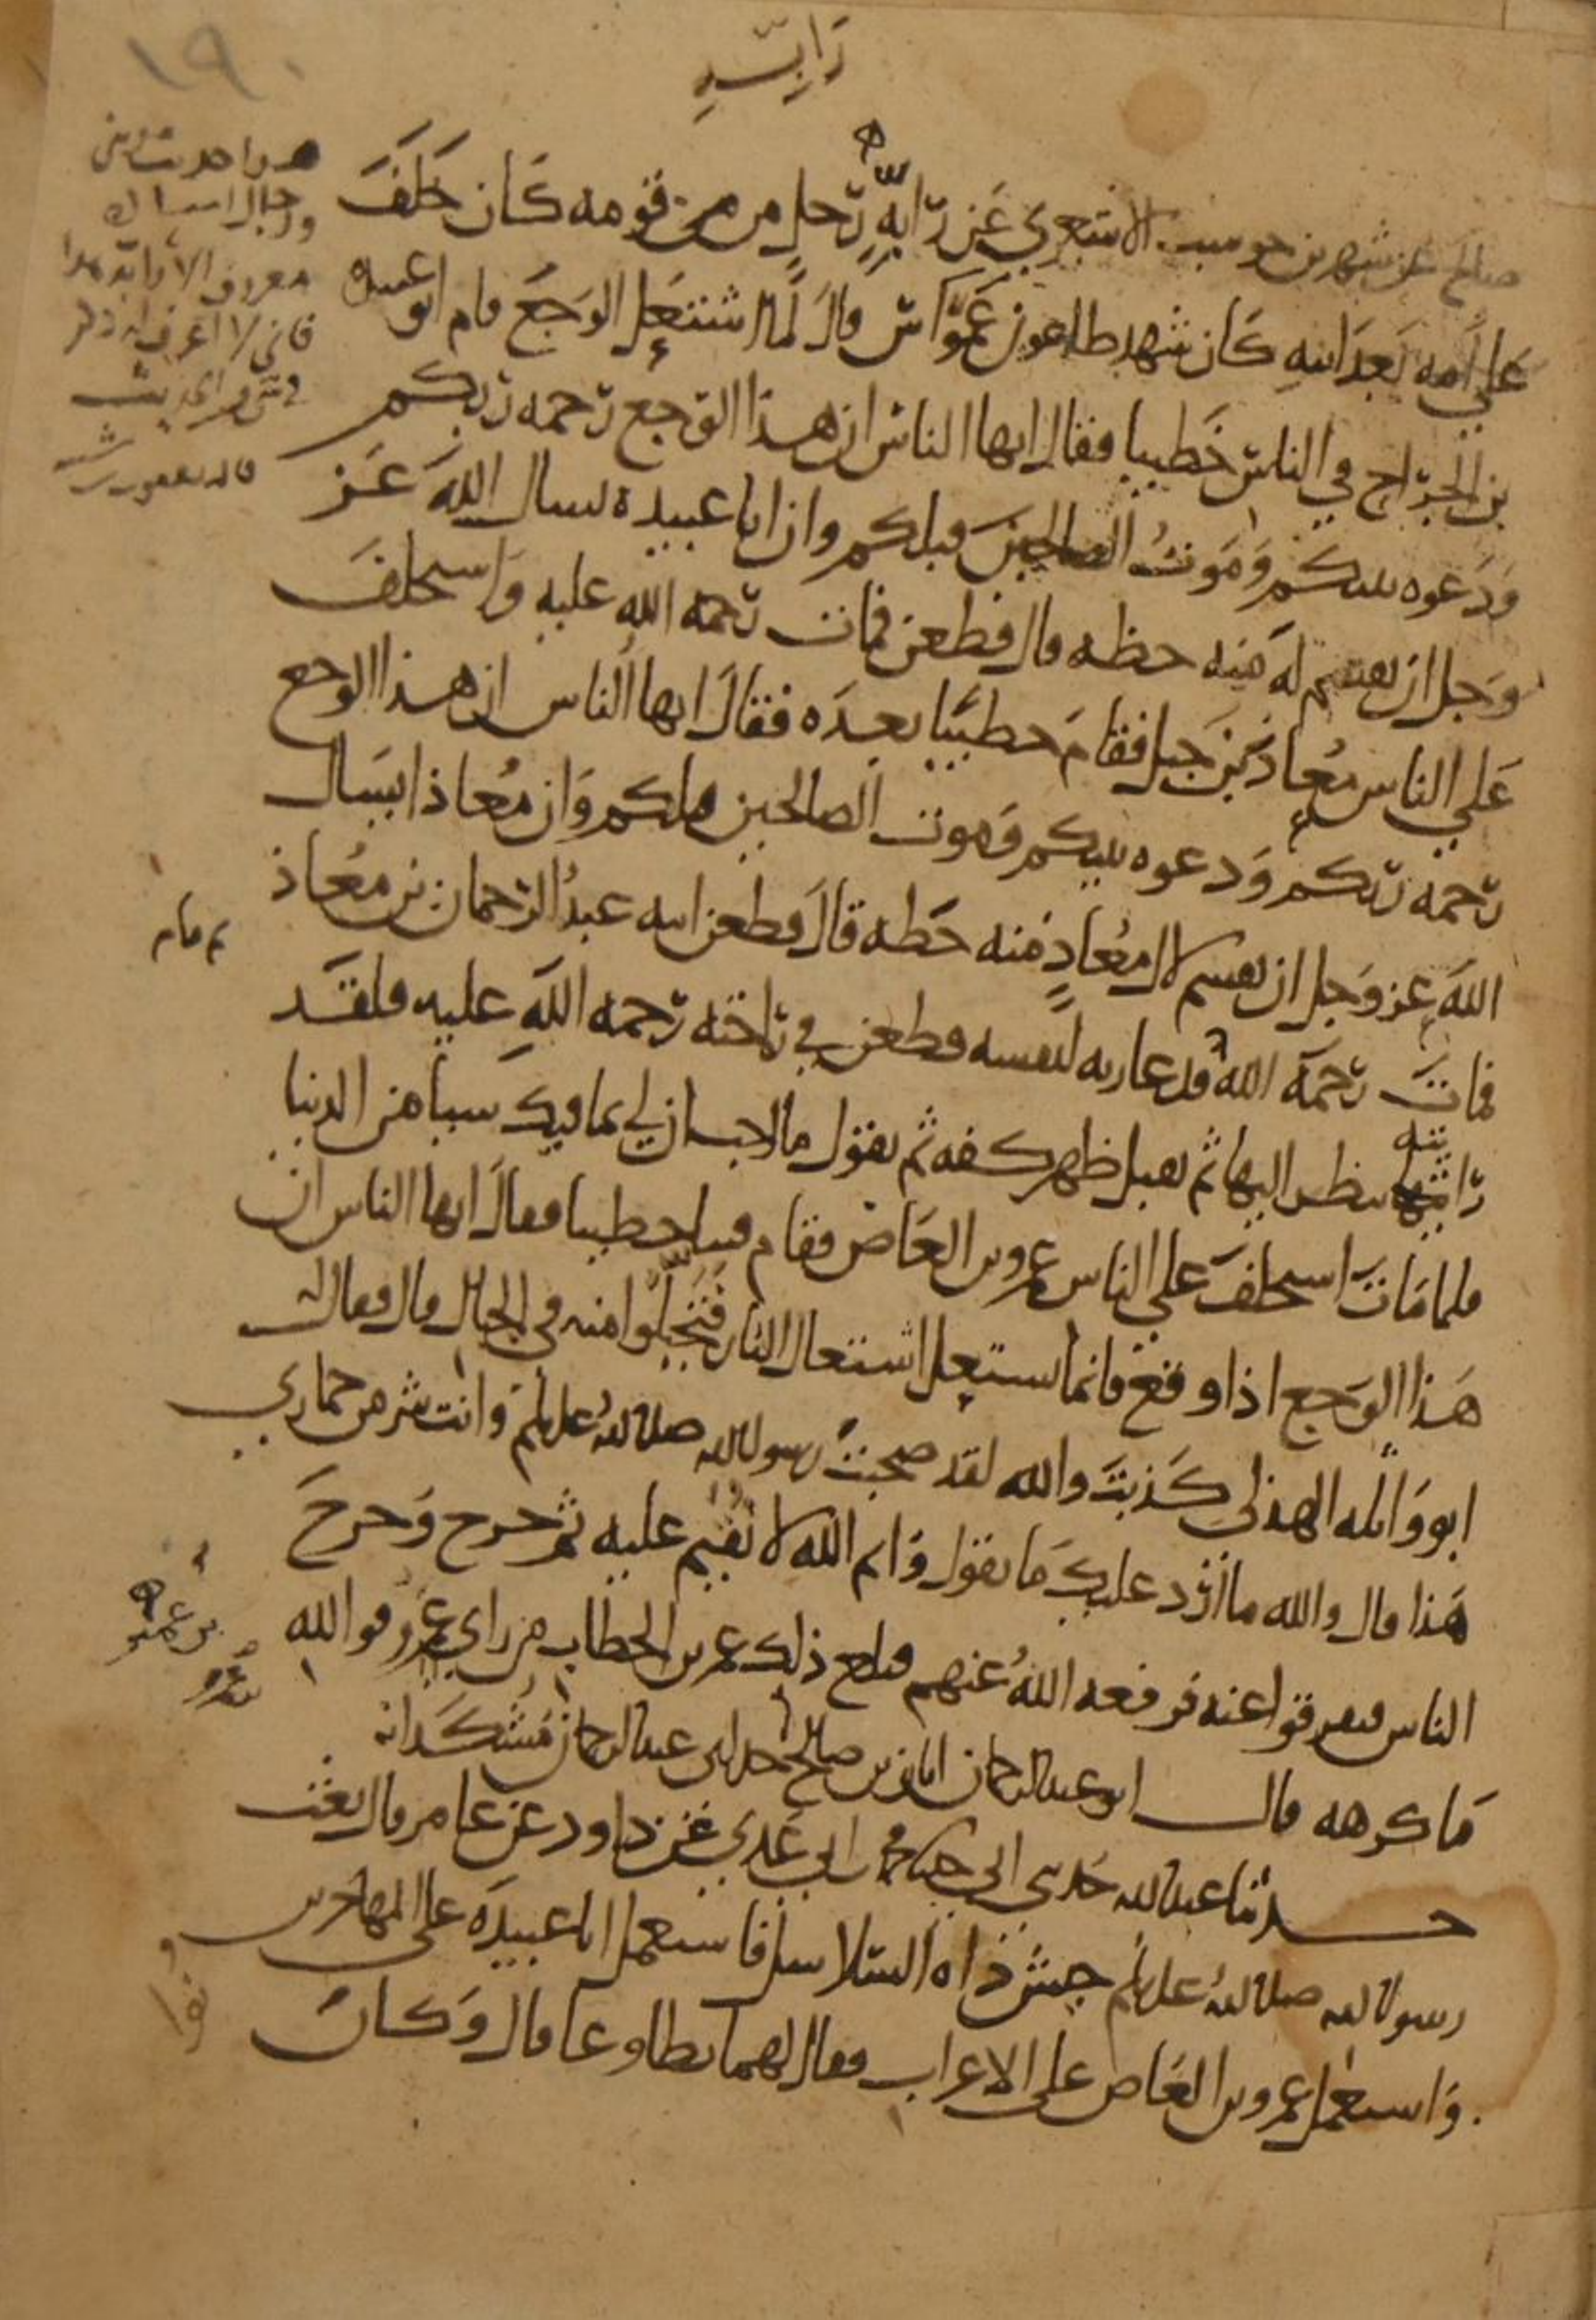 رَابِّهِ
١٩٠
صالح عن شهر بن حوشب الاشعري عَن رَابِّهِ رَجلٍ من قومه كَان خَلَفَ
عَلي اُمه بَعدَ ابيهِ كَان شهد طاعون عَمَوَاسَ قالَ لما اشتعَل الوَجَع قام ابو عبيدة
بن الجرّاح في الناس خَطيبا فقال ايها الناس ان هذا الوَجع رَحمه رَبكم
وَدَعوه نبيكم وَمَوتُ الصالحينَ قبلكم وان ابا عبيده يسال اللهَ عَز
وَجل ان يقسم لَه منِه حظه قال فطعن فمات رَحمه الله عليهِ وَاستخلفَ
عَلي الناس مُعاذ بن جَبل فقامَ خطيبًا بعدَه فقالَ ايها الناس ان هذا الوجع
رَحمه رَبكم وَدعوه نبيكم وَموت الصالحين قبلكم وَان مُعاذا يسَال
اللهَ عز وَجل ان يقسم لال مُعاذٍ منه حَظه قالَ فطعن ابنه عبدُ الرَحمان بن مُعاذ
فماتَ رَحمَه الله قام فدعا ربه لنفسه فطعن في رَاحته رَحمه اللهِ عليه فلقَد
رَايته ينظر اليها ثم يقبل ظهر كفه ثم يقول ما احب ان لي بما فيك شيا من الدنيا
فلما مَاتَ استخلفَ على الناس عمرو بن العَاص فقام فينا خطيبا فقالَ ايها الناس ان
هَذا الوَجع اذا وقع فانما يشتعِل اشتعال النار فَتَجَبَّلُوا منه في الجبال قال فقال
ابو وَاثله الهذلي كَذبتَ والله لقد صحبتُ رسول الله صلى الله عليه وسلم وَانت شر من حماري
هَذا قال والله ما اَرُد عليكَ مَا يقول وَايم الله لا نُقيم عليه ثم خرج وَخرجَ
الناس فتفرقوا عنه فرفعه اللهُ عنهم فبلغ ذلك عمر بن الخطاب من راي عمرو فوالله
مَا كرهه قال ابو عبد الرحمان ابان بن صالح جد ابي عبد الرحمان مُشكَدانه
حدثنا عبد الله حَدثني ابي محمد بن ابي عَدي عَن داود عن عامر قال بعث
رسول الله صلى الله عليه وسلم جيش ذات السَلاسل فاستعمل ابا عبيدَه على المهاجرين
وَاستعمل عمرو بن العَاص على الاعراب فقال لهما تطاوعا قال وَكانُ
وا